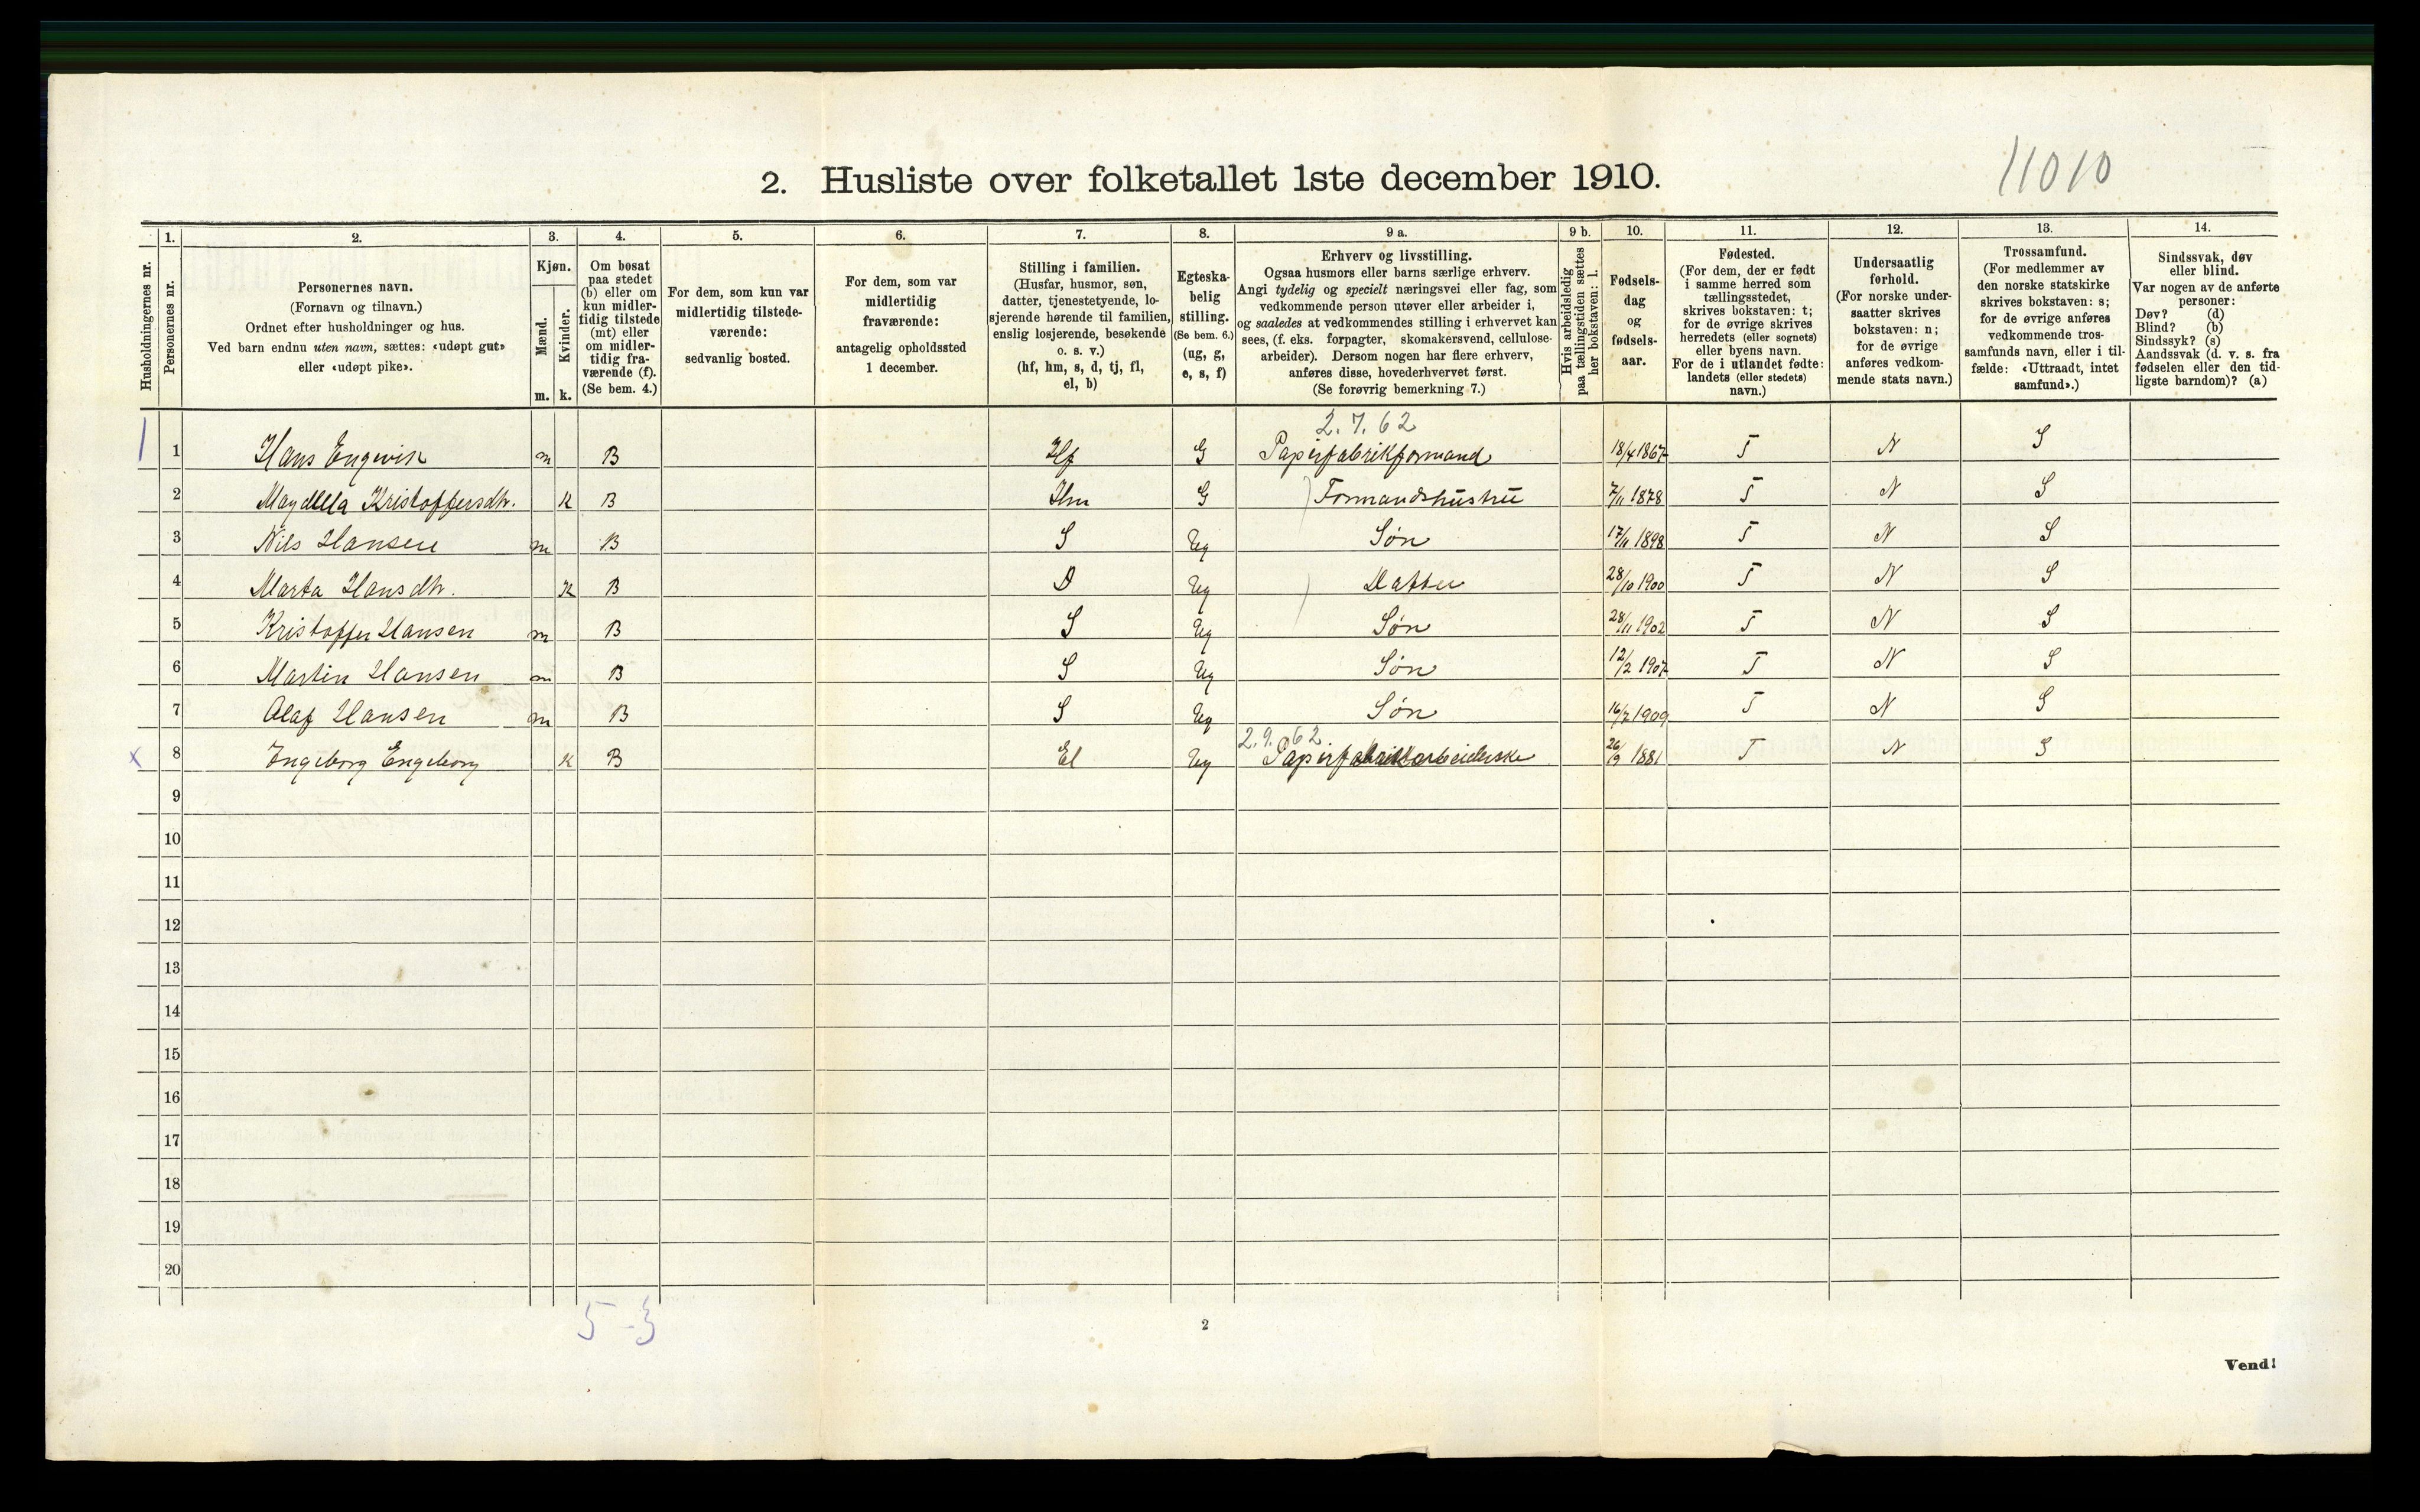 11010
2. Husliste over folketallet 1ste december 1910.
Husholdningernes nr.
1.
Personernes nr.
2.
Personernes navn.
(Fornavn og tilnavn.)
Ordnet efter husholdninger og hus.
Ved barn endnu uten navn, sættes: «udøpt gut»
eller «udøpt pike».
3.
Kjøn.
Mænd.
m.
Kvinder.
k.
4.
Om bosat
paa stedet
(b) eller om
kun midler-
tidig tilstede
(mt) eller
om midler-
tidig fra-
værende (f).
(Se bem. 4.)
5.
For dem, som kun var
midlertidig tilstede-
værende:
sedvanlig bosted.
6.
For dem, som var
midlertidig
fraværende:
antagelig opholdssted
1 december.
7.
Stilling i familien.
(Husfar, husmor, søn,
datter, tjenestetyende, lo-
sjerende hørende til familien,
enslig losjerende, besøkende
o. s. v.)
(hf, hm, s, d, tj, fl,
el, b)
8.
Egteska-
belig
stilling.
(Se bem. 6.)
(ug, g,
e, s, f)
9 a.
Erhverv og livsstilling.
Ogsaa husmors eller barns særlige erhverv.
Angi tydelig og specielt næringsvei eller fag, som
vedkommende person utøver eller arbeider i,
og saaledes at vedkommendes stilling i erhvervet kan
sees, (f. eks. forpagter, skomakersvend, cellulose-
arbeider). Dersom nogen har flere erhverv,
anføres disse, hovederhvervet først.
(Se forøvrig bemerkning 7.)
9 b.
Hvis arbeidsledig
paa tællingstiden sættes
her bokstaven: l.
10.
Fødsels-
dag
og
fødsels-
aar.
11.
Fødested.
(For dem, der er født
i samme herred som
tællingsstedet,
skrives bokstaven: t;
for de øvrige skrives
herredets (eller sognets)
eller byens navn.
For de i utlandet fødte:
landets (eller stedets)
navn.)
12.
Undersaatlig
forhold.
(For norske under-
saatter skrives
bokstaven: n;
for de øvrige
anføres vedkom-
mende stats navn.)
13.
Trossamfund.
(For medlemmer av
den norske statskirke
skrives bokstaven: s;
for de øvrige anføres
vedkommende tros-
samfunds navn, eller i til-
fælde: «Uttraadt, intet
samfund».)
14.
Sindssvak, døv
eller blind.
Var nogen av de anførte
personer:
Døv? (d)
Blind? (b)
Sindssyk? (s)
Aandssvak (d. v. s. fra
fødselen eller den tid-
ligste barndom)? (a)
2.7.62
1 1 Hans Engvik m B Hf G Papirfabrikformand 18/4 1867 T N S
2 Magdella Kristoffersdtr. K B Hm G Formandshustru 7/11 1878 T N S
3 Nils Hansen m B S Ug Søn 17/11 1898 T N S
4 Marta Hansdtr. K B D Ug Datter 28/10 1900 T N S
5 Kristoffer Hansen m B S Ug Søn 28/11 1902 T N S
6 Martin Hansen m B S Ug Søn 12/2 1907 T N S
7 Olaf Hansen m B S Ug Søn 16/7 1909 T N S
2.9.62.
x 8 Ingeborg Engeborg K B El Ug Papirfabrikarbeiderske 26/9 1881 T N S
9
10
11
12
13
14
15
16
17
18
19
20
5-3
2
Vend!